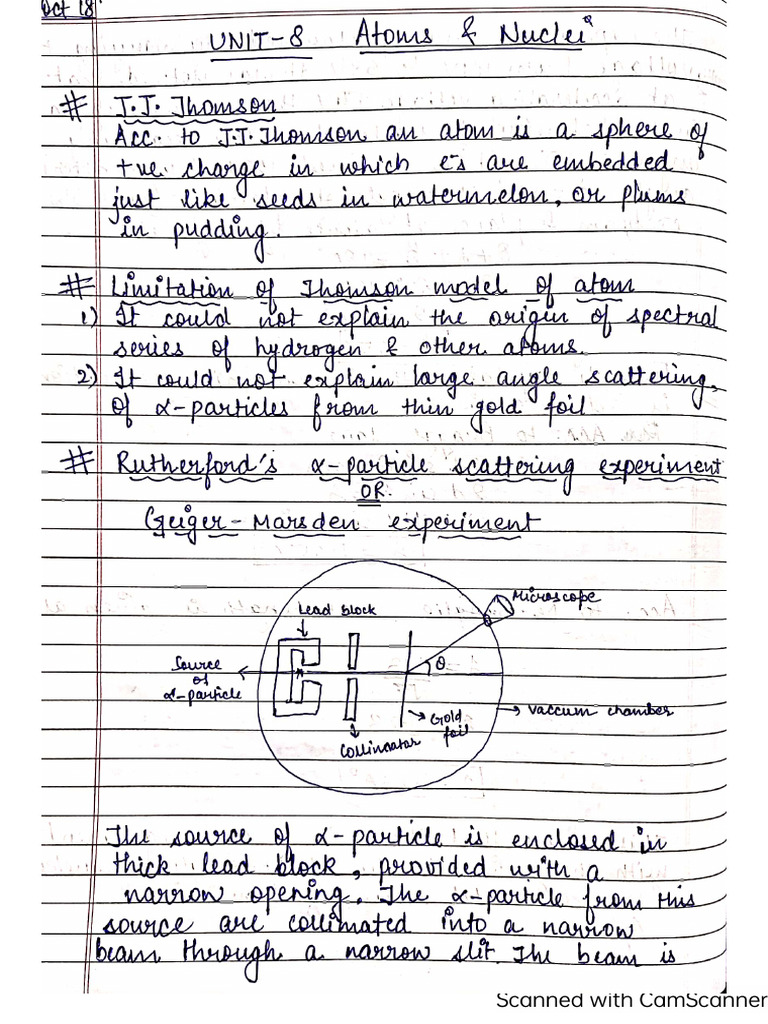 Oct 18
UNIT-8 Atoms & Nuclei
# J.J. Thomson
Acc. to J.J. Thomson an atom is a sphere of
+ve charge in which e-s are embedded
just like seeds in watermelon, or plums
in pudding.
# Limitation of Thomson model of atom
1) It could not explain the origin of spectral
series of hydrogen & other atoms.
2) It could not explain large angle scattering
of α-particles from thin gold foil
# Rutherford's α-particle scattering experiment
OR
Geiger-Marsden experiment
Microscope
Lead block
Source
of
α-particle
θ
Gold
foil
Vaccum chamber
Collimator
The source of α-particle is enclosed in
thick lead block, provided with a
narrow opening. The α-particle from this
source are collimated into a narrow
beam through a narrow slit. The beam is
Scanned with CamScanner